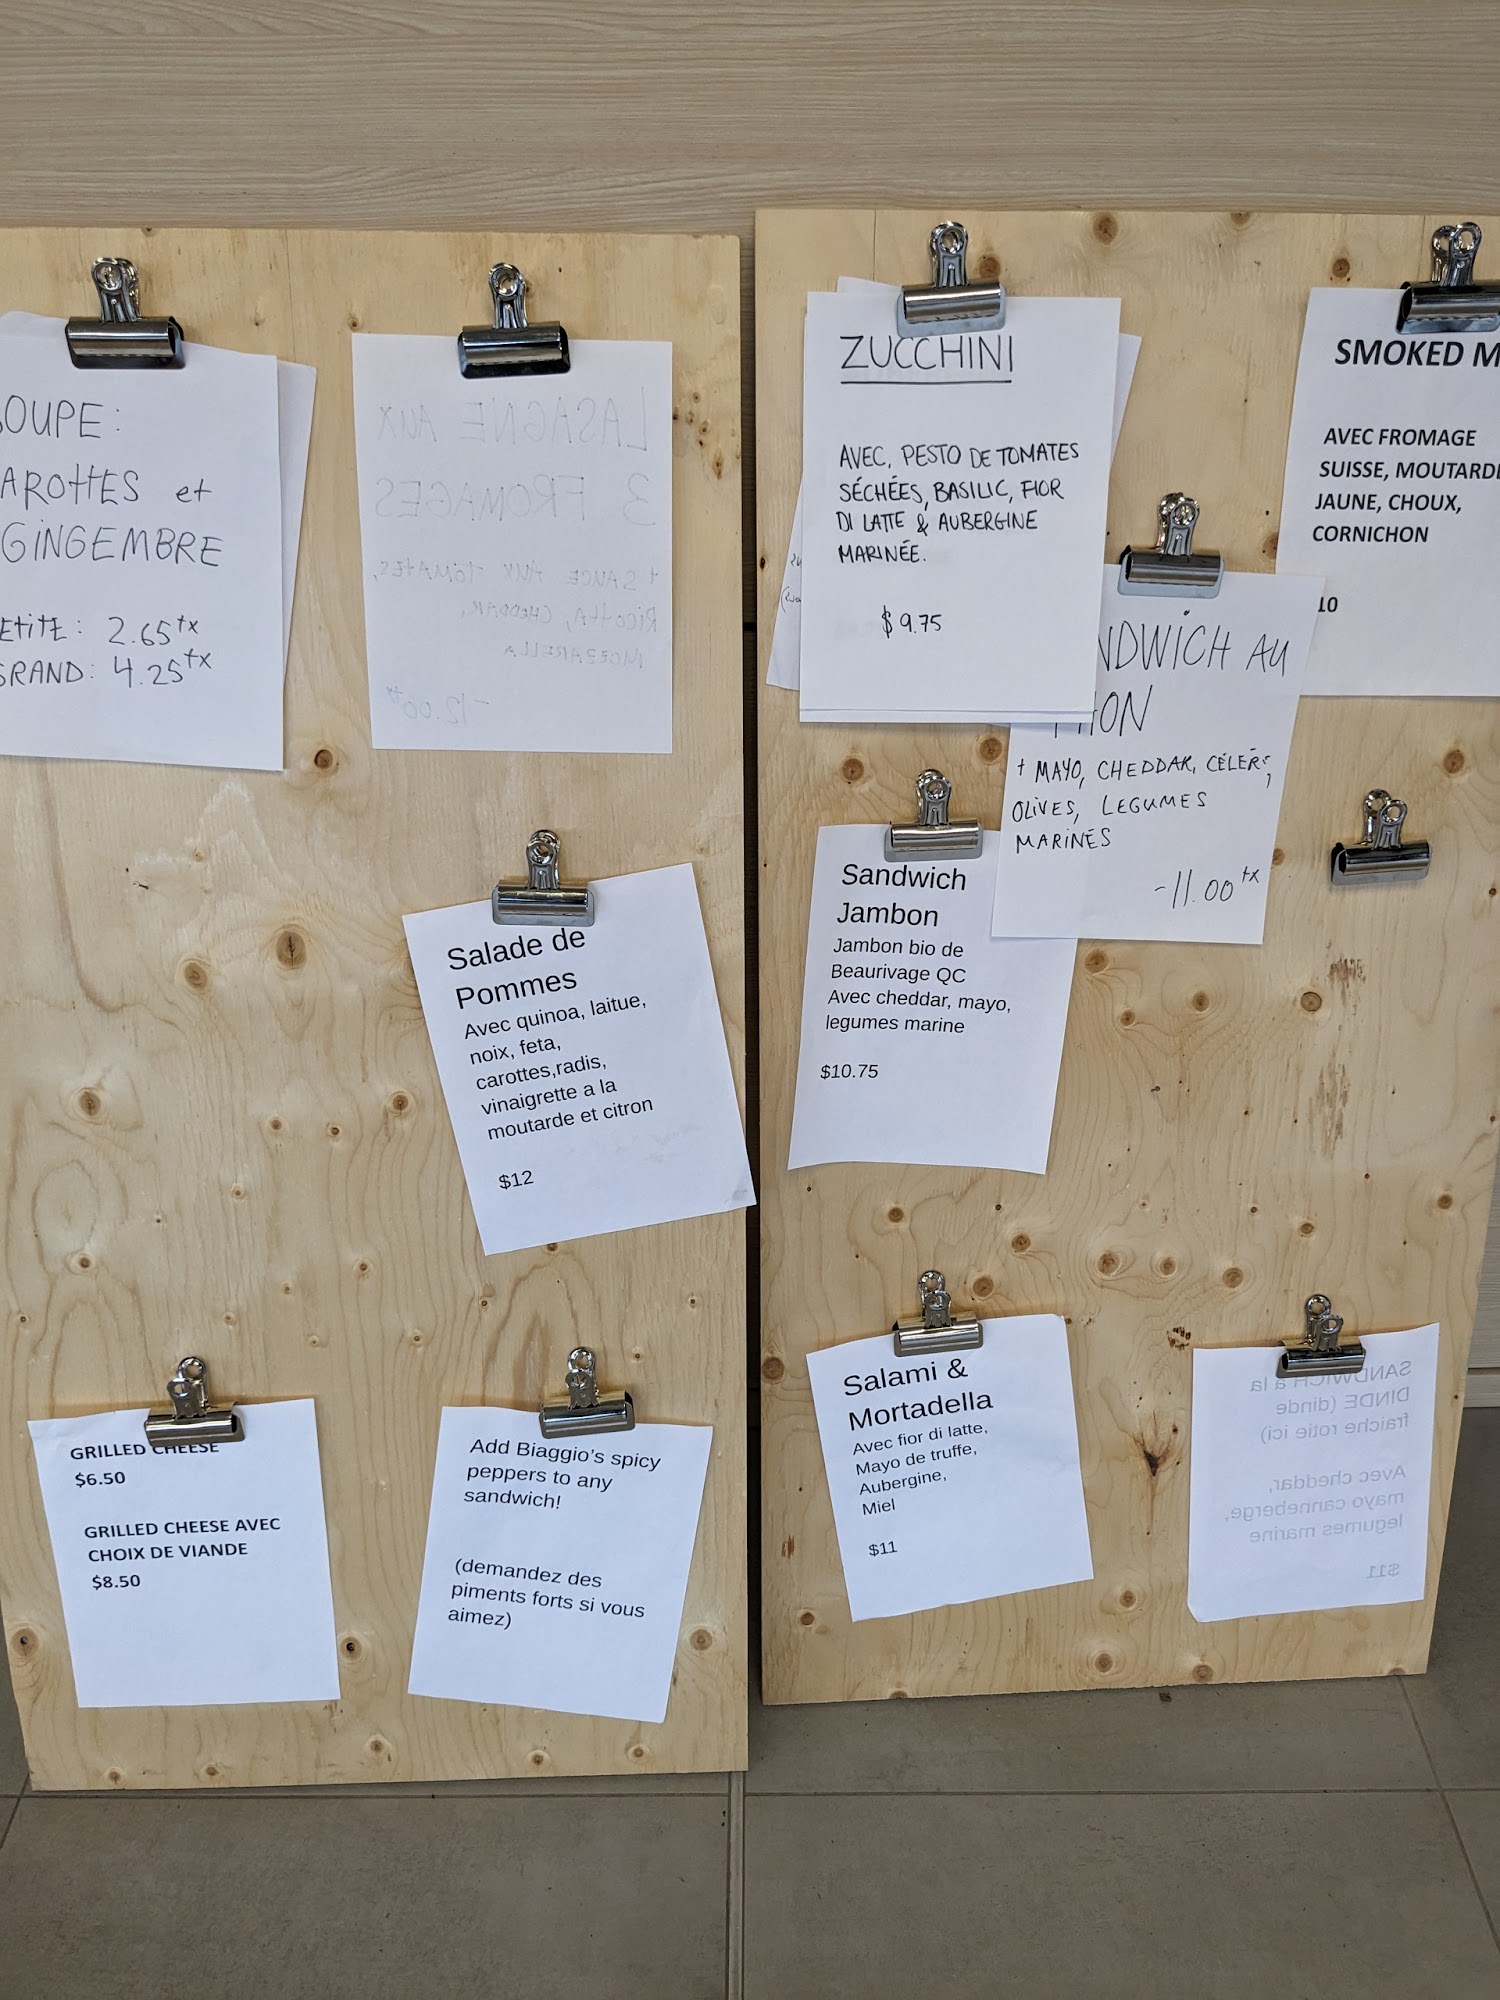 OUPE:
AROTTES et
GINGEMBRE
ETITE: 2.65tx
GRAND: 4.25tx
LASAGNE AUX
3 FROMAGES
+ SAUCE AUX TOMATES,
RICOTTA, CHEDDAR,
MOZZARELLA
-12.00tx
Salade de
Pommes
Avec quinoa, laitue,
noix, feta,
carottes,radis,
vinaigrette a la
moutarde et citron
$12
GRILLED CHEESE
$6.50
GRILLED CHEESE AVEC
CHOIX DE VIANDE
$8.50
Add Biaggio's spicy
peppers to any
sandwich!
(demandez des
piments forts si vous
aimez)
ZUCCHINI
AVEC, PESTO DE TOMATES
SÉCHÉES, BASILIC, FIOR
DI LATTE & AUBERGINE
MARINÉE.
$9.75
SMOKED M
AVEC FROMAGE
SUISSE, MOUTARDE
JAUNE, CHOUX,
CORNICHON
10
NDWICH AU
THON
+ MAYO, CHEDDAR, CÉLERI,
OLIVES, LÉGUMES
MARINÉS
-11.00tx
Sandwich
Jambon
Jambon bio de
Beaurivage QC
Avec cheddar, mayo,
legumes marine
$10.75
Salami &
Mortadella
Avec fior di latte,
Mayo de truffe,
Aubergine,
Miel
$11
SANDWICH a la
DINDE (dinde
fraiche rotie ici)
Avec cheddar,
mayo canneberge,
legumes marine
$11